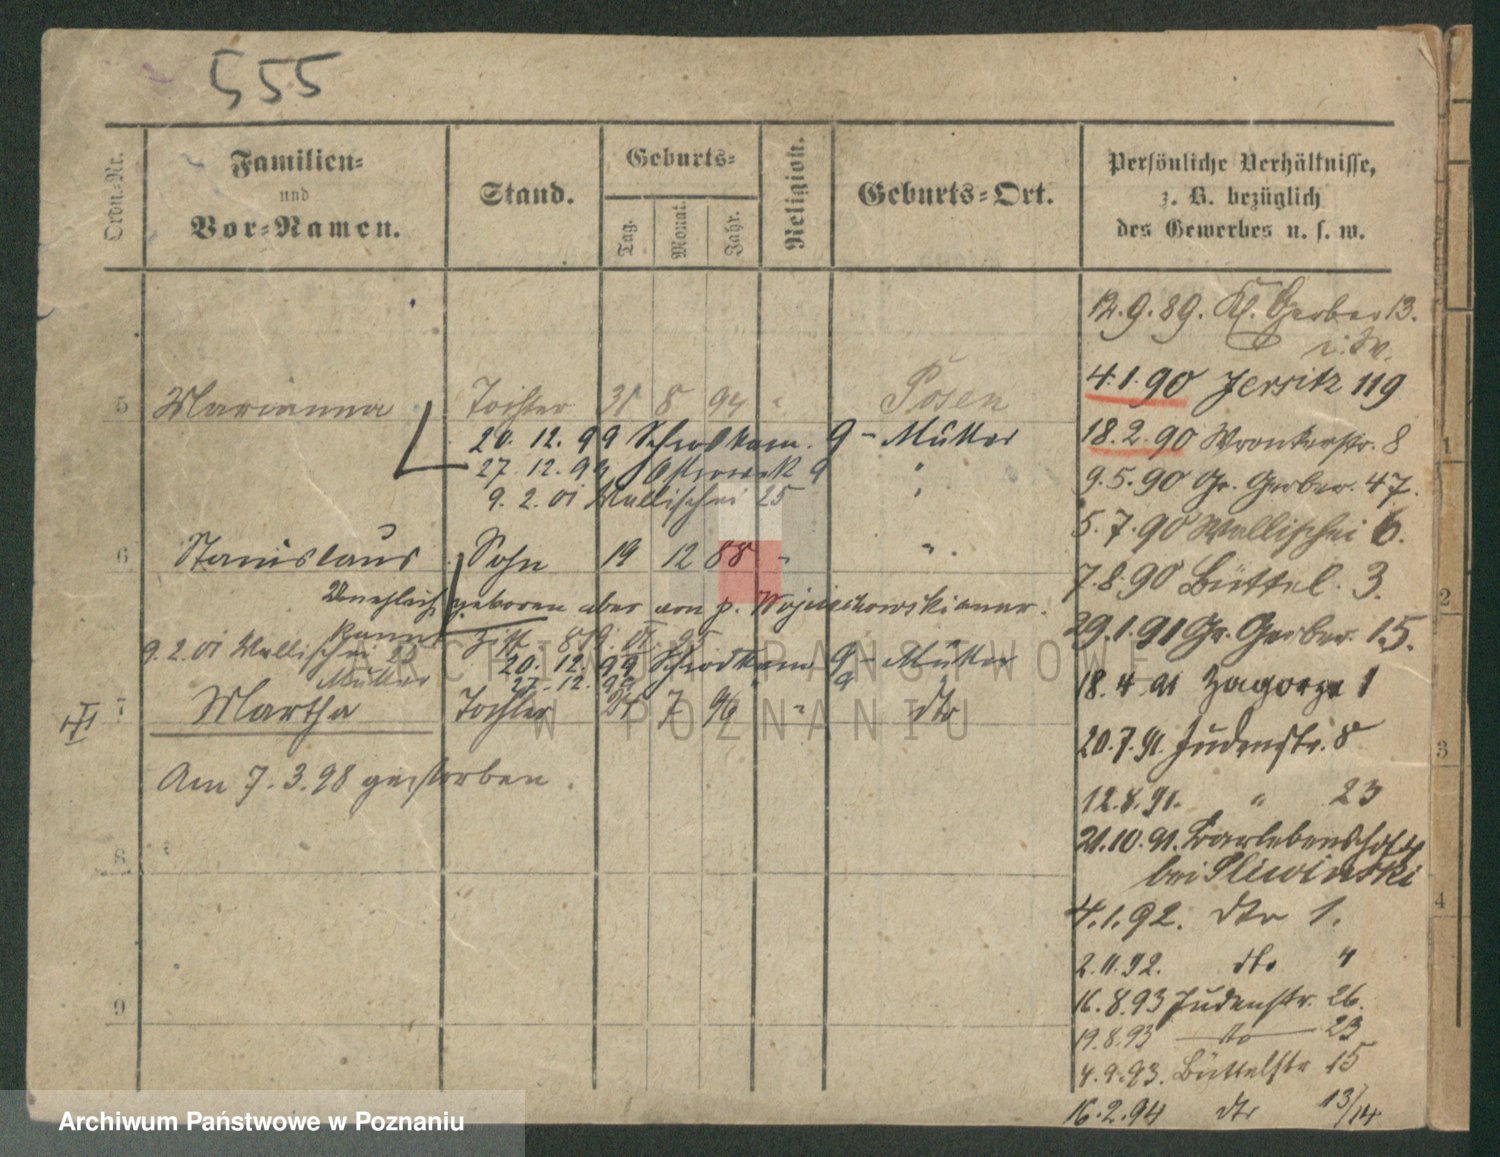 555
Ordn.-Nr.
Familien-
und
Vor-Namen.
Stand.
Geburts-
Tag.
Monat.
Jahr.
Religion.
Geburts-Ort.
Persönliche Verhältnisse,
z. B. bezüglich
des Gewerbes u. s. w.
5 Marianna Tochter 31 8 94 " Posen
20. 12. 99 Schrodkam. 9 - Mutter
27. 12. 99 Ostrowek 9 "
9. 2. 01 Wallischei 25
6 Stanislaus Sohn 19 12 88 " "
Unehlich geboren aber von p. Wojciechowski aner.
9. 2. 01 Wallischei 25
Mutter
20. 12. 99 Schrodkam 9 - Mutter
27. 12. 99 " 9 "
7 Martha Tochter 7 96 " dto
Am 7. 3. 98 gestorben.
8
9
12. 9. 89. Kl. Gerber 13.
i. W.
4. 1. 90 Jersitz 119
18. 2. 90 Wronkerstr. 8
9. 5. 90 Gr. Gerber. 47.
5. 7. 90 Wallischei 6.
7. 8. 90 Büttel. 3.
29. 1. 91 Gr. Gerber. 15.
18. 4. 91 Zagorze 1
20. 7. 91. Judenstr. 8
12. 8. 91. " 23
21. 10. 91. Barlebenshof 4
bei Sliwinski
4. 1. 92. dto 1.
2. 11. 92. dto 4
16. 8. 93 Judenstr. 26.
19. 8. 93 dto 23
4. 9. 93. Büttelstr 15
16. 2. 94 dto 13/14
1
2
3
4
ARCHIWUM PAŃSTWOWE
W POZNANIU
Archiwum Państwowe w Poznaniu